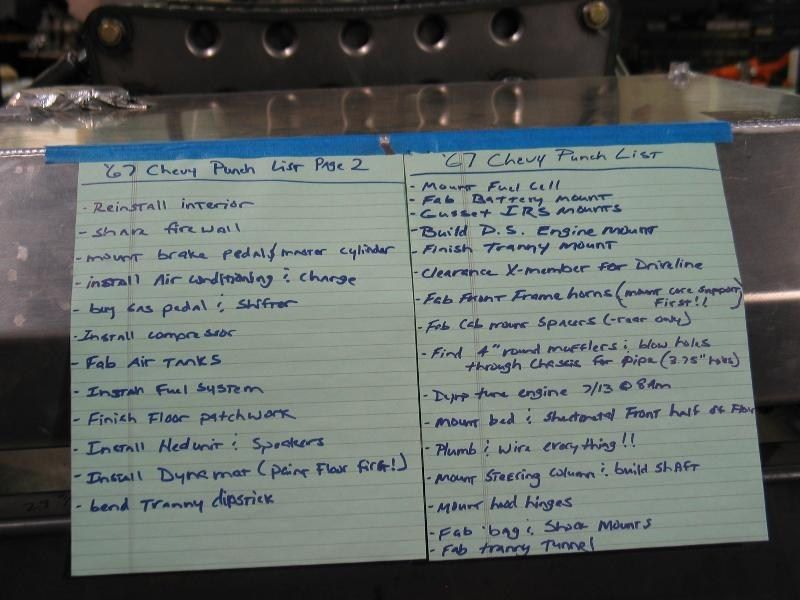 '67 Chevy Punch List Page 2
- Reinstall interior
- shave firewall
- mount brake pedal/master cylinder
- install Air conditioning & Charge
- buy gas pedal & shifter
- Install compressor
- Fab Air TANKS
- Install Fuel System
- Finish Floor patchwork
- Install Hedunit & Speakers
- Install Dynamat (paint Floor first!)
- bend Tranny dipstick
'67 Chevy Punch List
- Mount Fuel Cell
- Fab Battery mount
- Gusset IRS mounts
- Build D.S. Engine mount
- Finish Tranny mount
- Clearance X-member for Driveline
- Fab Front Frame horns (mount core support
First!!)
- Fab Cab mount Spacers (-rear only)
- Find 4" round mufflers & blow holes
through Chassis for pipe (3.75" holes)
- Dyno tune engine 7/13 @ 8Am
- Mount bed & Sheetmetal Front half of Floor
- Plumb & Wire everything!!
- Mount Steering Column & build shaft
- Mount hood hinges
- Fab 'bag & Shock Mounts
- Fab tranny Tunnel